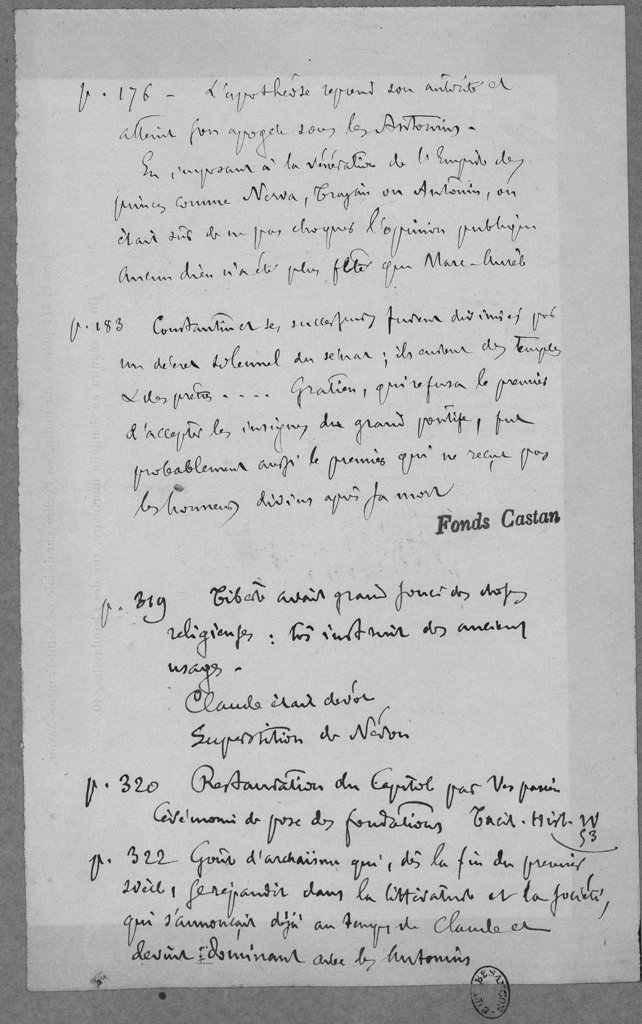 p. 176 - L'apothéose reprend son autorité et
atteint son apogée sous les Antonins.
En imposant à la vénération de l'Empire des
princes comme Nerva, Trajan ou Antonin, on
était sûr de ne pas choquer l'opinion publique
Aucun dieu n'a été plus fêté que Marc-Aurèle
p. 183 Constantin et ses successeurs furent divinisés par
un décret solennel du sénat ; ils eurent des temples
& des prêtres .... Gratien, qui refusa le premier
d'accepter les insignes du grand pontife, fut
probablement aussi le premier qui ne reçut pas
les honneurs divins après sa mort
Fonds Castan
p. 319 Tibère avait grand souci des choses
religieuses : très instruit des anciens
usages.
Claude était dévot
Superstition de Néron
p. 320 Restauration du Capitole par Vespasien
Cérémonie de pose des fondations Tacit. Hist. IV
53
p. 322 Goût d'archaïsme qui, dès la fin du premier
siècle, se répandit dans la littérature et la société,
qui s'annonçait déjà au temps de Claude et
devint dominant avec les Antonins